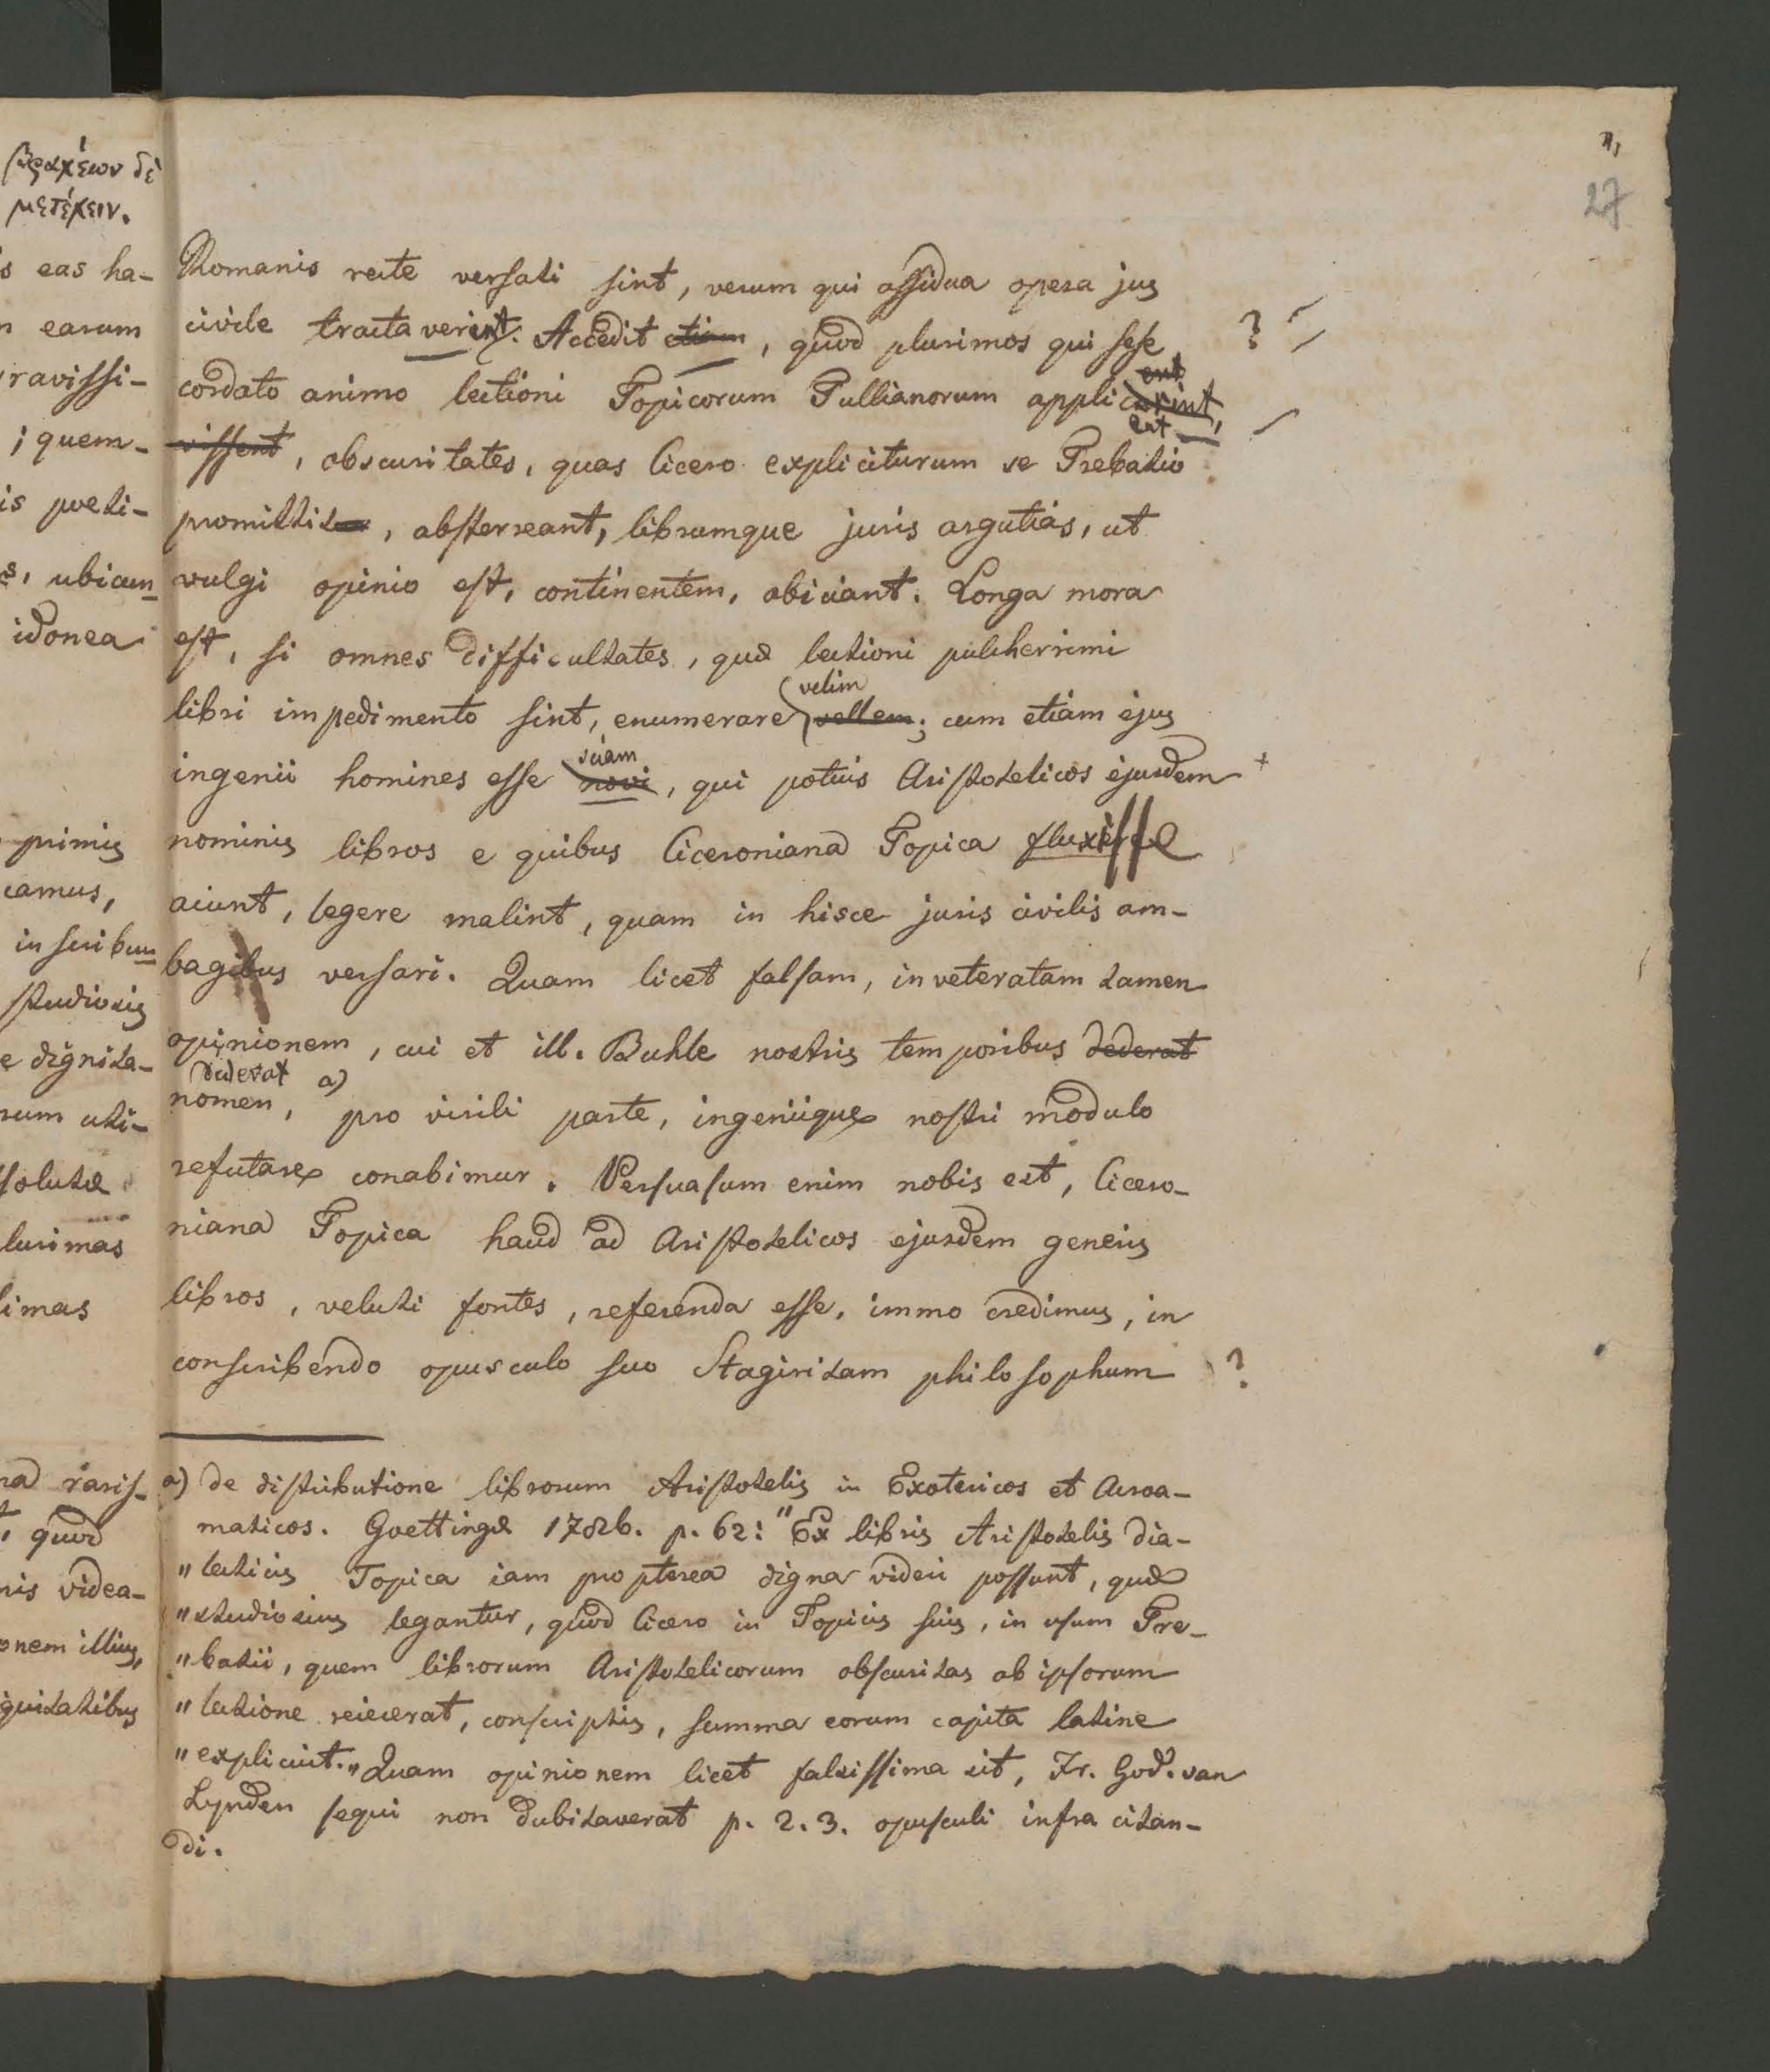 βραχέων δὲ
μετέχειν.
27
s eas ha-
earum
ravissi-
; quem-
is poeti-
s, ubicun
idonea
primis
camus,
in scribun
studiosis
e dignita-
rum uti-
solutæ
lurimas
limas
raris-
quod
nis videa-
onem illius,
quitatibus
Romanis recte versati sint, verum qui assidua opera jus
civile tractaverint. Accedit etiam, quod plurimos qui sese ?
ent
cordato animo lectioni Topicorum Tullianorum applicarint,
eat
vissent, obscuritates, quas Cicero expliciturum se Trebatio
promittit, absterreant, librumque juris argutias, ut
vulgi opinio est, continentem, abiciant. Longa mora
est, si omnes difficultates, quæ lectioni pulcherrimi
velim
libri impedimento sint, enumerare vellem; cum etiam ejus
sciam
ingenii homines esse novi, qui potius Aristotelicos ejusdem +
nominis libros e quibus Ciceroniana Topica fluxisse
aiunt, legere malint, quam in hisce juris civilis am-
bagibus versari. Quam licet falsam, inveteratam tamen
opinionem, cui et ill. Buhle nostris temporibus dederat
dederat
nomen, a) pro virili parte, ingeniique nostri modulo
refutare conabimur. Persuasum enim nobis est, Cicero-
niana Topica haud ad Aristotelicos ejusdem generis
libros, veluti fontes, referenda esse, immo credimus, in
conscribendo opusculo suo Stagiritam philosophum ?
a) de distributione librorum Aristotelis in Exotericos et Acroa-
maticos. Goettingæ 1786. p. 62: "Ex libris Aristotelis dia-
"lecticis Topica iam propterea digna videri possunt, quæ
"studiosius legantur, quod Cicero in Topicis suis, in usum Tre-
"batii, quem librorum Aristotelicorum obscuritas ab ipsorum
"lectione reiecerat, conscriptis, summa eorum capita latine
"explicuit." Quam opinionem licet falsissima sit, Fr. God. van
Lynden sequi non dubitaverat p. 2. 3. opusculi infra citan-
di.